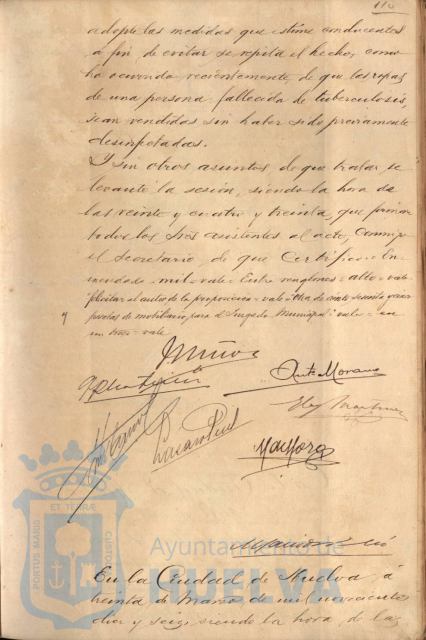 110
adopte las medidas que estime conducentes
á fin de evitar se repita el hecho, como
ha ocurrido recientemente, de que las ropas
de una persona fallecida de tuberculosis,
sean vendidas sin haber sido previamente
desinfectadas.
Y sin otros asuntos de que tratar, se
levantó la sesión, siendo la hora de
las veinte y cuatro y treinta, que firman
todos los Sres asistentes al acto, conmigo
el secretario, de que Certifico = En
mendado = mil = vale = Entre renglones = alto = vale
felicitar al autor de la proposición = vale =
pesetas de mobiliario para el Juzgado Municipal = vale = en
un = vale
Muñoz
Ant. Morano
Mayorga
PORTUS MARIS
ET TERRÆ
CUSTODIA
Ayuntamiento de
HUELVA
En la Ciudad de Huelva, á
treinta de de mil novecientos
diez y seis siendo la hora de las